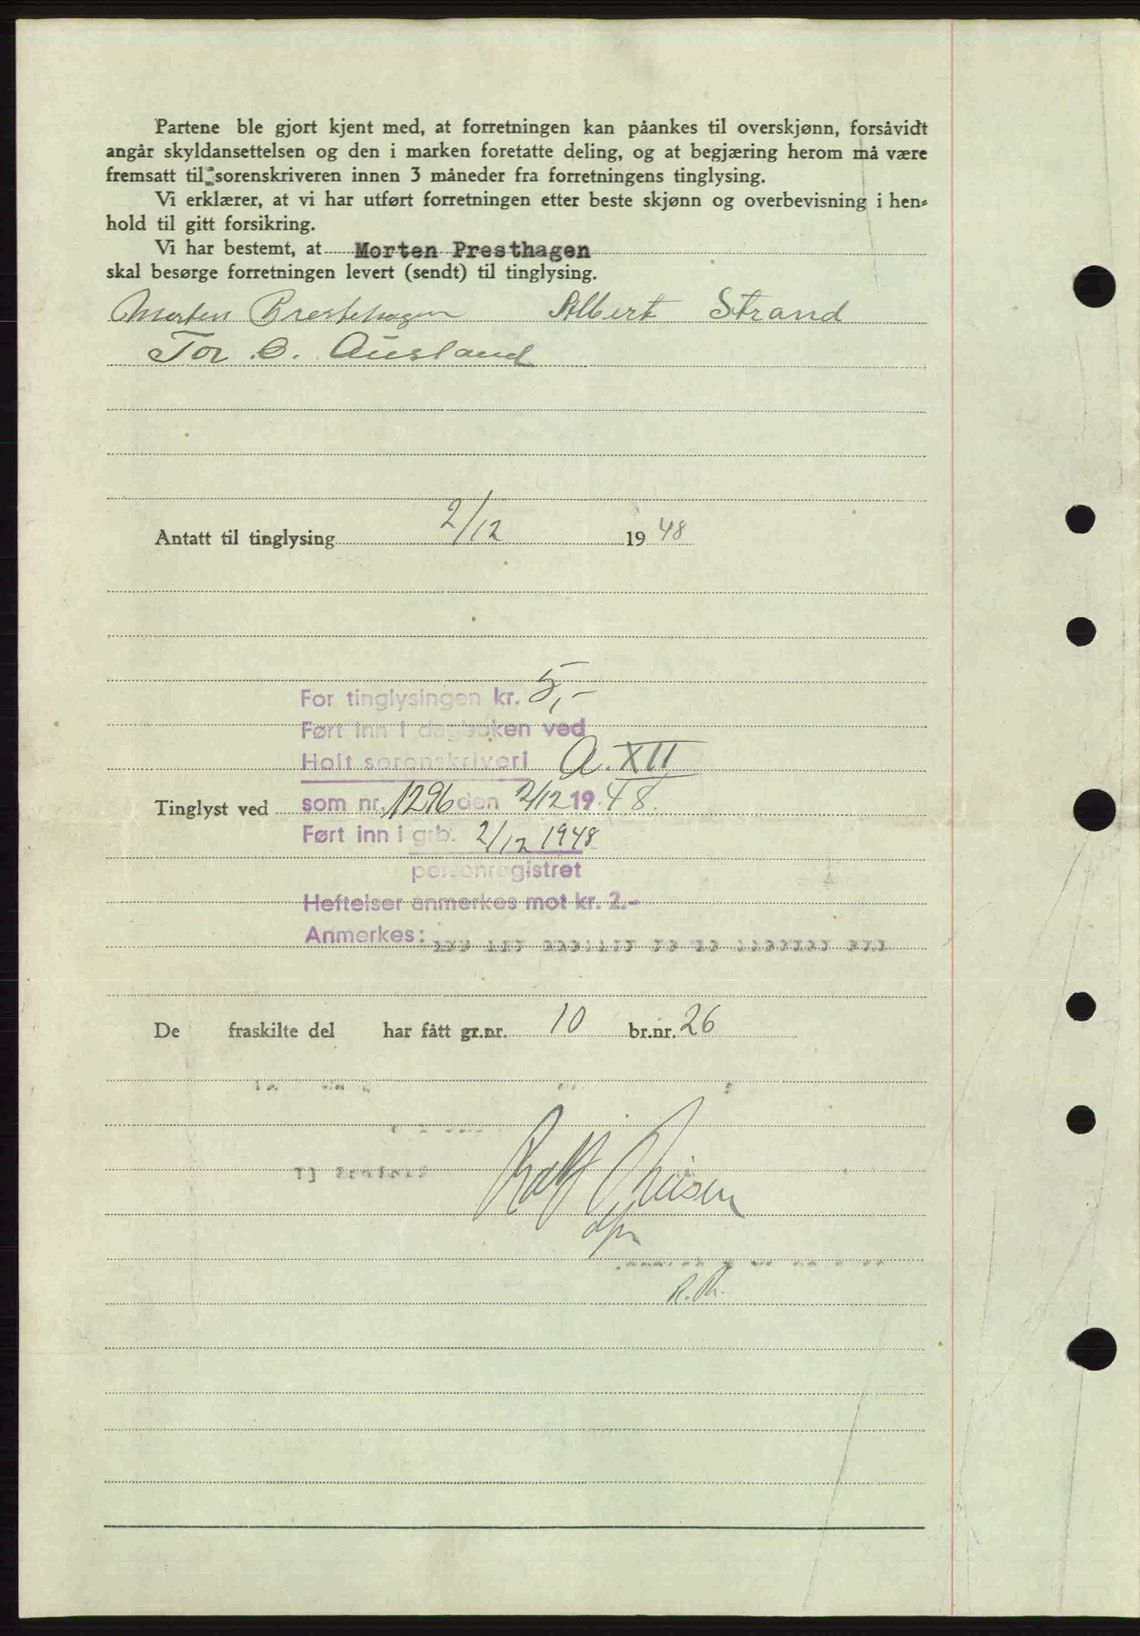 Partene ble gjort kjent med, at forretningen kan påankes til overskjønn, forsåvidt
angår skyldansettelsen og den i marken foretatte deling, og at begjæring herom må være
fremsatt til sorenskriveren innen 3 måneder fra forretningens tinglysing.
Vi erklærer, at vi har utført forretningen etter beste skjønn og overbevisning i hen-
hold til gitt forsikring.
Vi har bestemt, at Morten Presthagen
skal besørge forretningen levert (sendt) til tinglysing.
Morten Presthagen Albert Strand
Tor O. Ausland
Antatt til tinglysing 2/12 1948
For tinglysingen kr. 5,-
Ført inn i dagboken ved
Holt sorenskriveri A. XII
Tinglyst ved som nr. 1296 den 2/12 1948.
Ført inn i grb. 2/12 1948
personregistret
Heftelser anmerkes mot kr. 2.-
Anmerkes:
De fraskilte del har fått gr.nr. 10 br.nr. 26